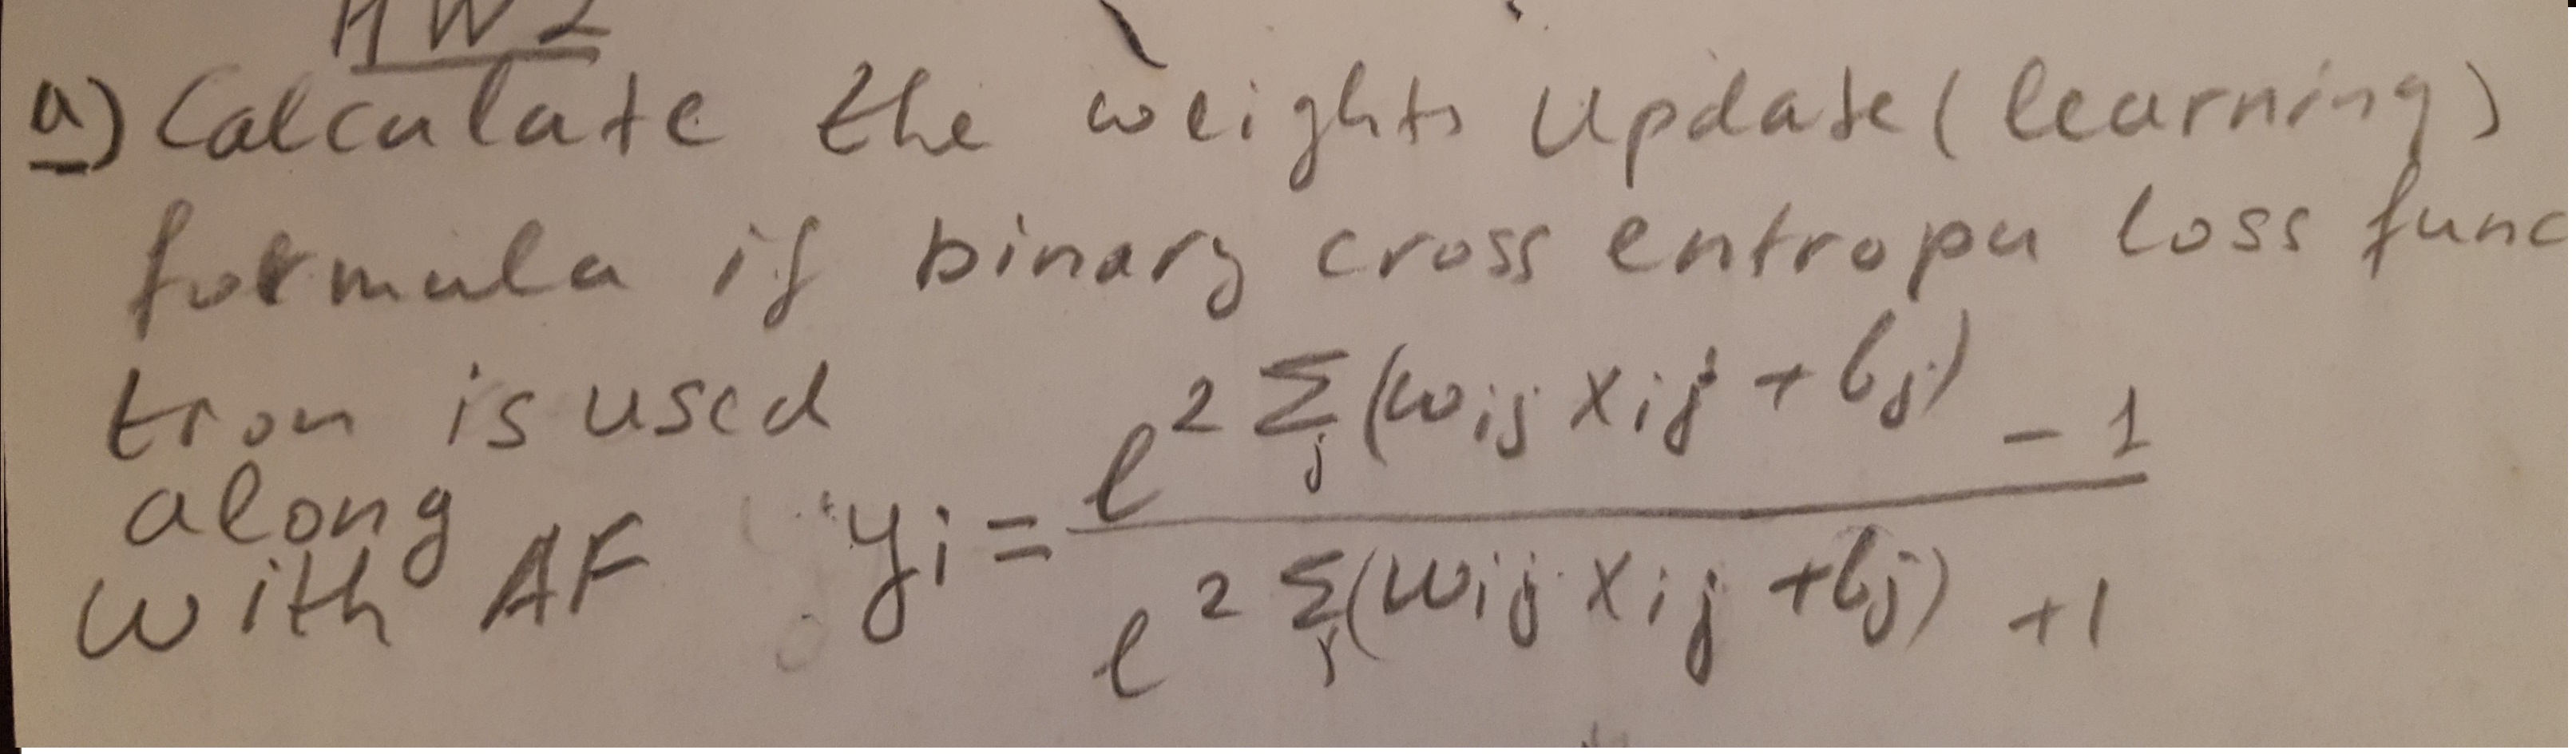 HW2
a) Calculate the weights update (learning)
formula if binary cross entropy loss func
tion is used
along
with AF y_i = (e^{2 Σ_j (w_{ij} x_{ij} + b_j)} - 1) / (e^{2 Σ_j (w_{ij} x_{ij} + b_j)} + 1)